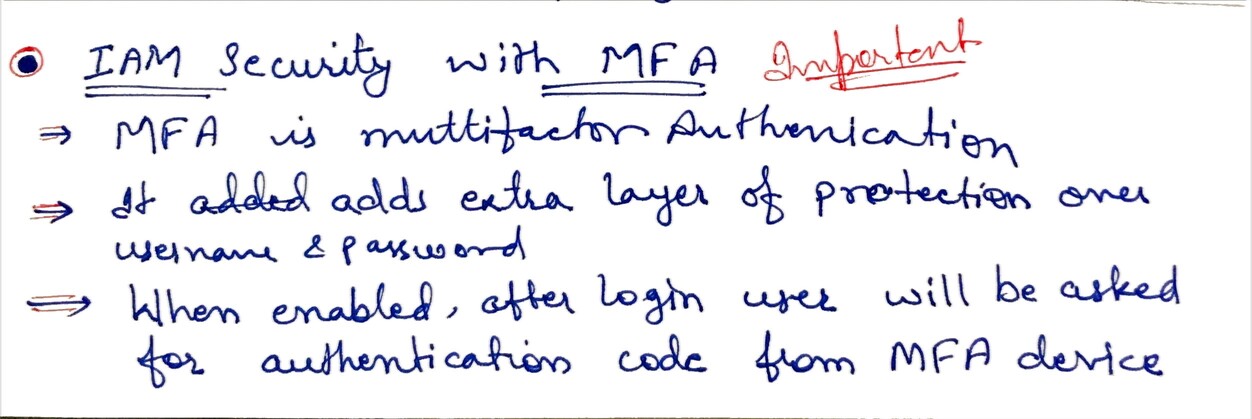 IAM Security with MFA Important
⇒ MFA is multifactor Authenication
⇒ It added adds extra layer of protection over
username & password
⇒ When enabled, after login user will be asked
for authentication code from MFA device